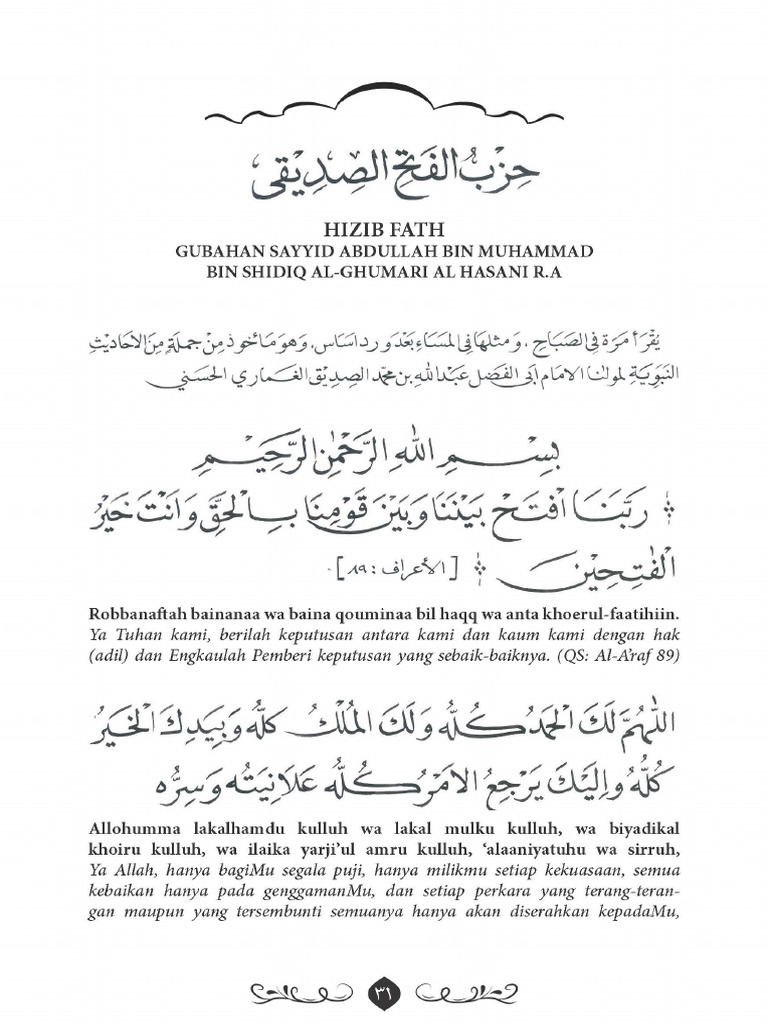 حِزْبُ الْفَتْحِ الصِّدِيْقِى
HIZIB FATH
GUBAHAN SAYYID ABDULLAH BIN MUHAMMAD
BIN SHIDIQ AL-GHUMARI AL HASANI R.A
يُقْرَأ مَرَة فِي الصَبَاحِ ، وَمثلهَا فِي المَسَاءِ بَعْدَ ورد اسَاس، وَهوَ مَأخُوذ مِنْ جملَةٍ مِنَ الاَحَادِيْثِ
النَبَوِيَةِ لمولٰنَا الامَام اَبِى الفَضْل عَبْد اللهِ بن محمّد الصِديقِ الغمَاري الحَسَني
بِسْمِ اللهِ الرَّحْمٰنِ الرَّحِيْمِ
﴿ رَبَّنَا افْتَحْ بَيْنَنَا وَبَيْنَ قَوْمِنَا بِالْحَقِّ وَاَنْتَ خَيْرُ
الْفٰتِحِيْنَ ﴾ [الأعراف : ٨٩].
Robbanaftah bainanaa wa baina qouminaa bil haqq wa anta khoerul-faatihiin.
Ya Tuhan kami, berilah keputusan antara kami dan kaum kami dengan hak
(adil) dan Engkaulah Pemberi keputusan yang sebaik-baiknya. (QS: Al-A'raf 89)
اَللّٰهُمَّ لَكَ الْحَمْدُ كُلُّهُ وَلَكَ الْمُلْكُ كُلُّهُ وَبِيَدِكَ الْخَيْرُ
كُلُّهُ وَاِلَيْكَ يَرْجِعُ الْاَمْرُ كُلُّهُ عَلَانِيَتُهُ وَسِرُّهُ
Allohumma lakalhamdu kulluh wa lakal mulku kulluh, wa biyadikal
khoiru kulluh, wa ilaika yarji'ul amru kulluh, 'alaaniyatuhu wa sirruh,
Ya Allah, hanya bagiMu segala puji, hanya milikmu setiap kekuasaan, semua
kebaikan hanya pada genggamanMu, dan setiap perkara yang terang-teran-
gan maupun yang tersembunti semuanya hanya akan diserahkan kepadaMu,
٣١